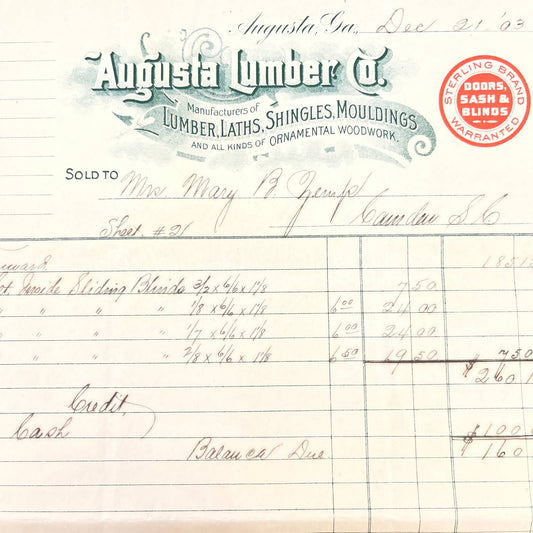 Augusta, Ga., Dec 21 '03
Augusta Lumber Co.
Manufacturers of
LUMBER, LATHS, SHINGLES, MOULDINGS
AND ALL KINDS OF ORNAMENTAL WOODWORK.
STERLING BRAND
DOORS,
SASH &
BLINDS
WARRANTED
SOLD TO Mrs Mary B Zemp
Camden S C
Sheet #21
1851
Inside Sliding Blinds 3/2 x 6/6 x 1 1/8 7 50
" " " " 1/8 x 6/6 x 1 1/8 6 00 24 00
" " " " 1/7 x 6/6 x 1 1/8 6 00 24 00
" " " " 3/8 x 6/6 x 1 1/8 6 50 19 50 750
$ 2601
Credit
Cash $1000
Balance Due $ 160